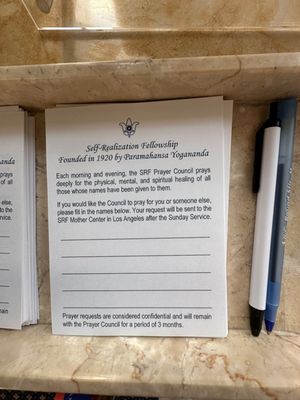 Self-Realization Fellowship
Founded in 1920 by Paramahansa Yogananda
Each morning and evening, the SRF Prayer Council prays
deeply for the physical, mental, and spiritual healing of all
those whose names have been given to them.
If you would like the Council to pray for you or someone else,
please fill in the names below. Your request will be sent to the
SRF Mother Center in Los Angeles after the Sunday Service.
Prayer requests are considered confidential and will remain
with the Prayer Council for a period of 3 months.
nanda
prays
of all
else,
to the
ce.
main